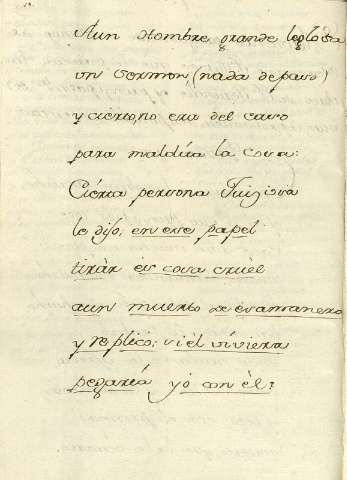 Aun Hombre grande leglosa
un sermon, (nada de paso)
y cierto, no era del caso
para maldita la cosa:
Cierta persona Juiziosa
le dijo, en ese papel
tiràr es cosa cruèl
aun muerto de esa manera
y replicó; si èl viviera
pegaría yo con èl?